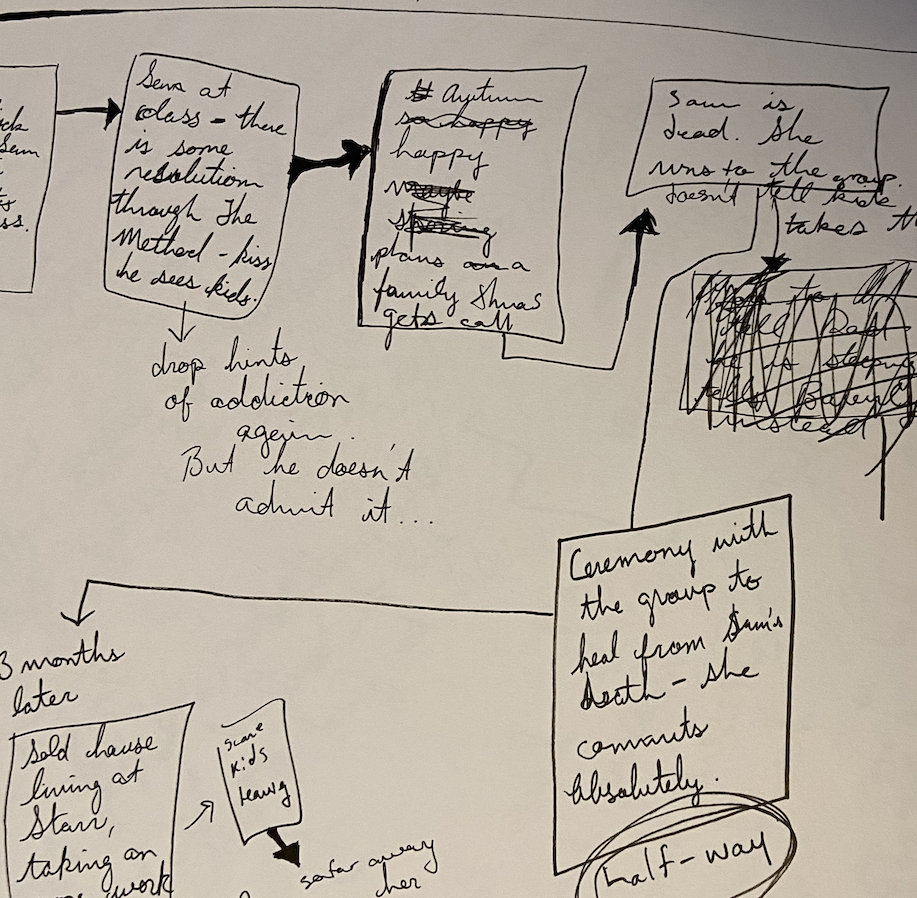 Sam at
class - there
is some
resolution
through The
Method - kiss
he sees kids.
drop hints
of addiction
again.
But he doesn't
admit it...
Autumn
so happy
happy
plans a
family
gets call
Sam is
dead. She
runs to the group.
doesn't tell kids
takes
tell
he is
tells
instead
Ceremony with
the group to
heal from Sam's
death - she
commits
Absolutely.
half-way
3 months
later
Sold house
living at
Starr,
taking on
work
scare
kids
so far away
her